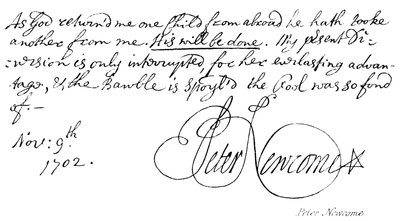 As God return'd me one Child from abroad he hath tooke
another from me. His will be done. My pr̃sent Di-
version is only interrupted for her everlasting advan-
tage, & the Bawble is spoyl'd the Fool was so fond
of.—
Nov: 9.th
1702.
Peter Newcome
Peter Newcome